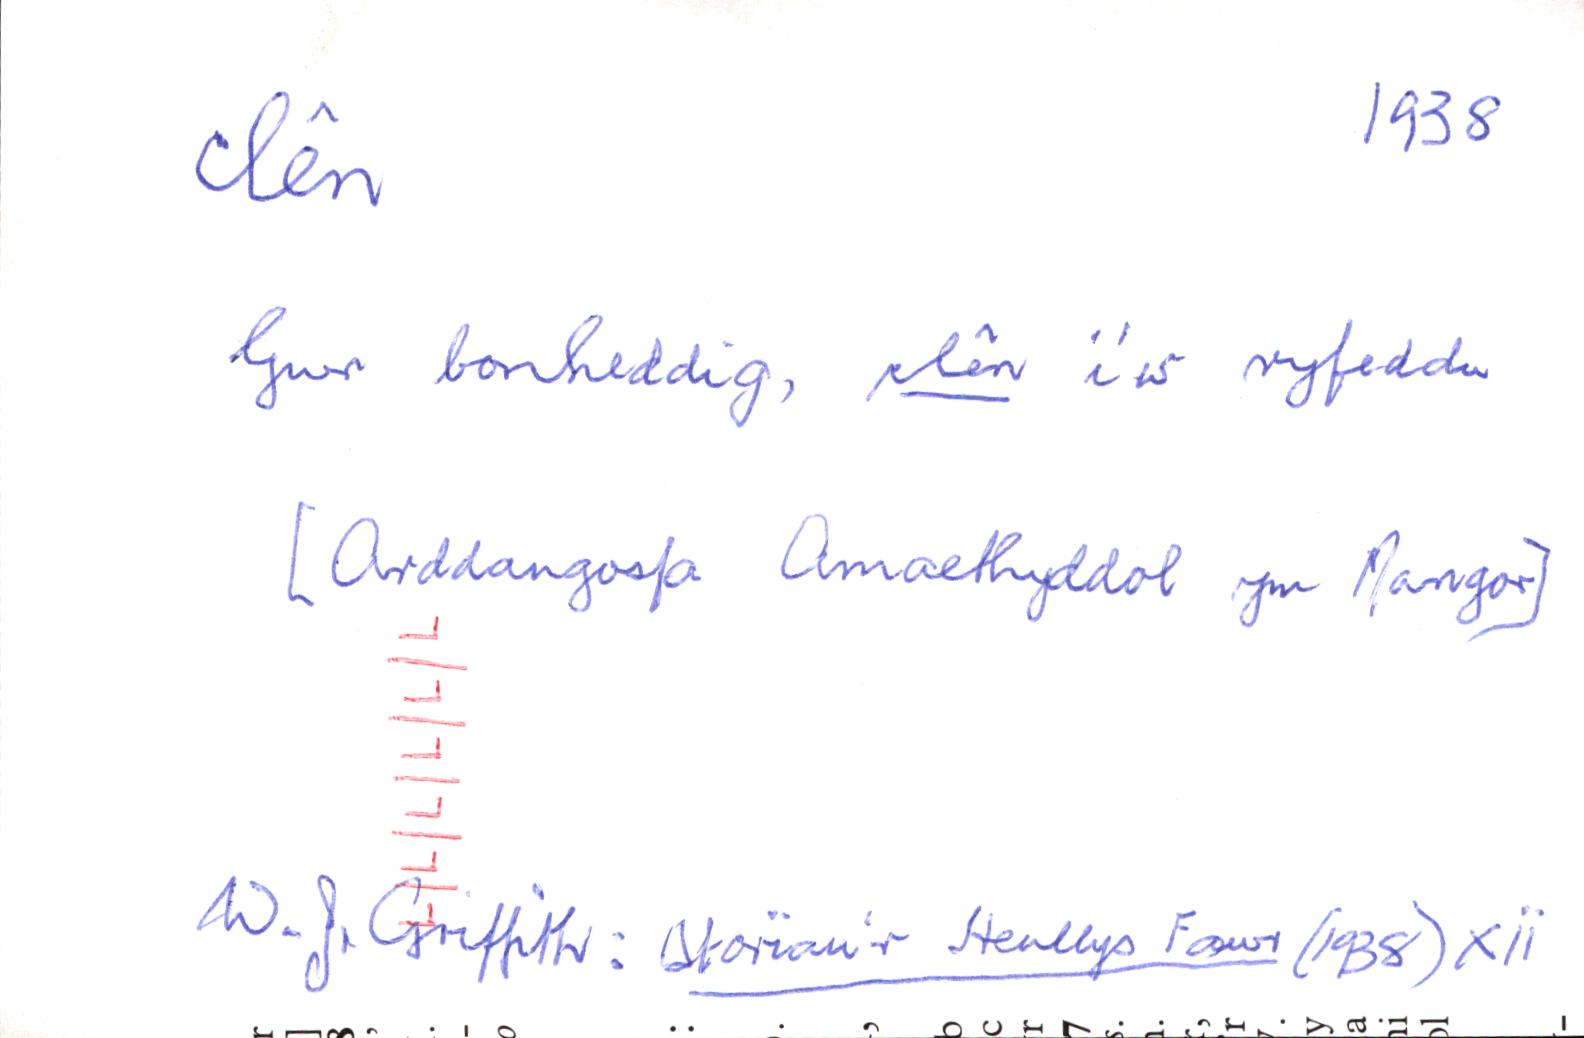 clên
1938
Gwr bonheddig, clên i'w ryfeddu
[Arddangosfa Amaethyddol ym Mangor]
W. J. Griffith: Storïau'r Henllys Fawr (1938) xii